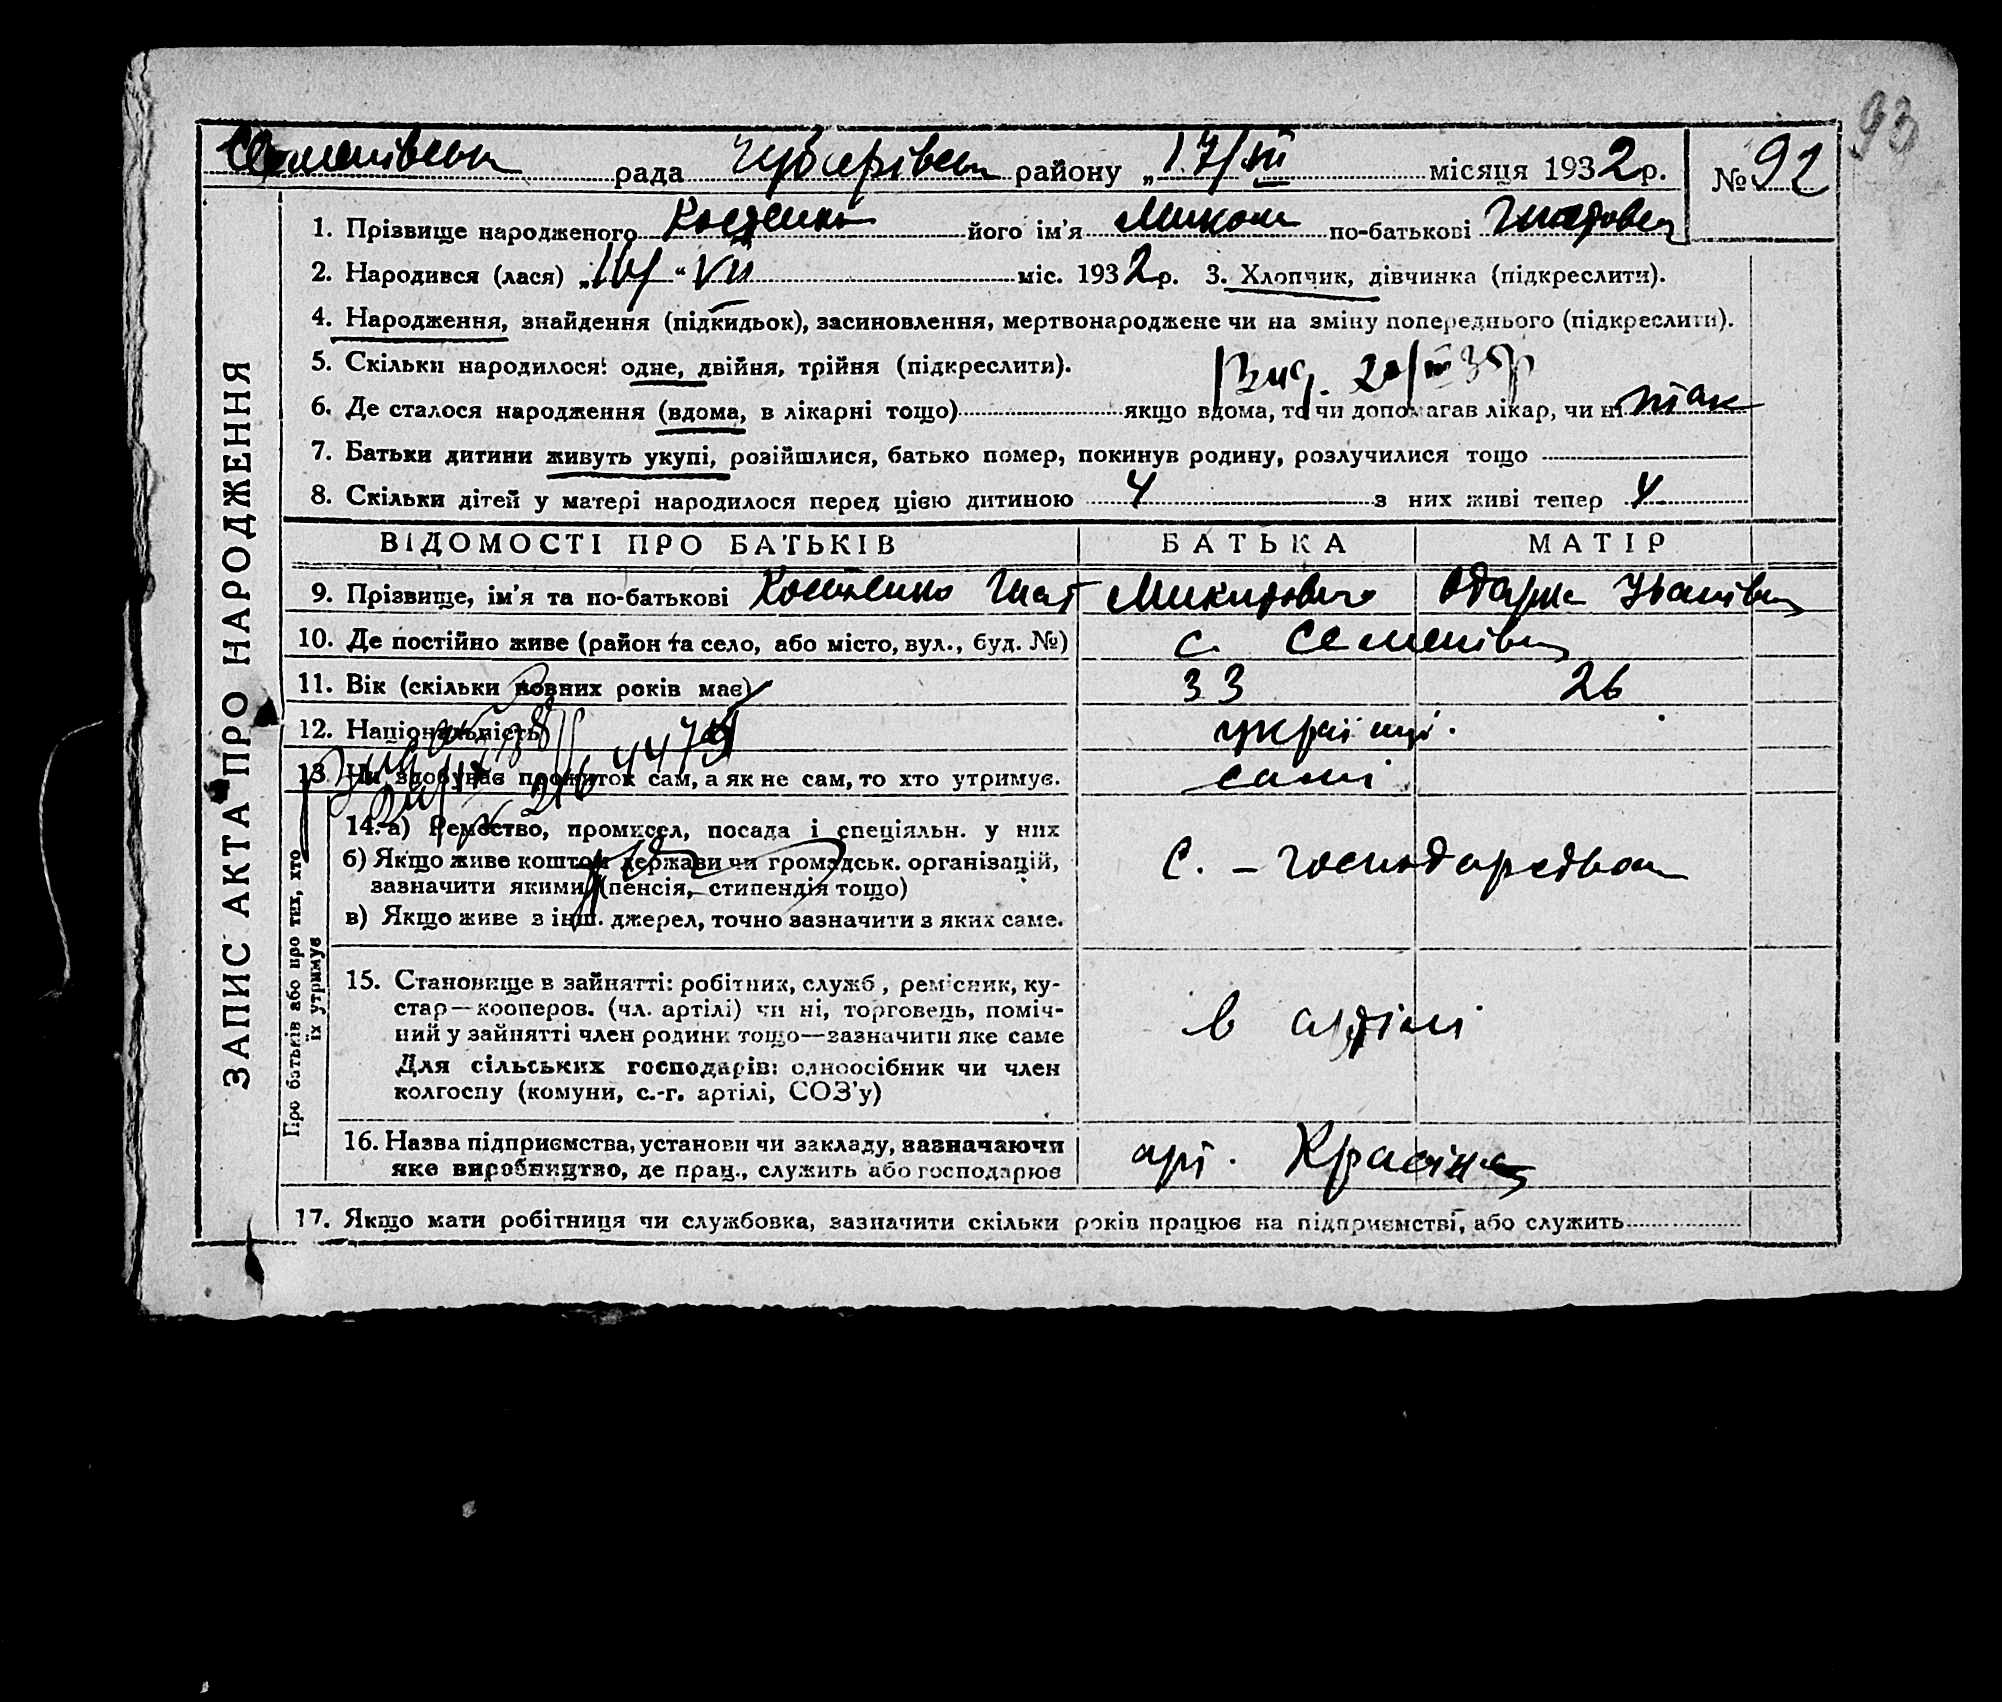 93
Семенівськ рада Чубарівськ району „17/III місяця 1932 р. № 92
1. Прізвище народженого Костенко його ім'я Микола по-батькові Гнатович
2. Народився (лася) „ “ VII міс. 1932 р. 3. Хлопчик, дівчинка (підкреслити).
4. Народження, знайдення (підкидьок), засиновлення, мертвонароджене чи на зміну попереднього (підкреслити).
5. Скільки народилося: одне, двійня, трійня (підкреслити).
6. Де сталося народження (вдома, в лікарні тощо) якщо вдома, то чи допомагав лікар, чи ні так
7. Батьки дитини живуть укупі, розійшлися, батько помер, покинув родину, розлучилися тощо
8. Скільки дітей у матері народилося перед цією дитиною 4 з них живі тепер 4
ВІДОМОСТІ ПРО БАТЬКІВ БАТЬКА МАТІР
9. Прізвище, ім'я та по-батькові Костенко Гнат Микитович Одарка Іванівна
10. Де постійно живе (район та село, або місто, вул., буд. №) с. Семенівка
11. Вік (скільки повних років має) 33 26
12. Національність українці.
13. Чи здобуває прожиток сам, а як не сам, то хто утримує. самі
14. а) Ремество, промисел, посада і спеціяльн. у них
б) Якщо живе коштом держави чи громадськ. організацій,
зазначити якими (пенсія, стипендія тощо)
с. - господарством
в) Якщо живе з інш. джерел, точно зазначити з яких саме.
15. Становище в зайнятті: робітник, служб, ремісник, ку-
стар—кооперов. (чл. артілі) чи ні, торговець, поміч-
ний у зайнятті член родини тощо—зазначити яке саме
в артілі
Для сільських господарів: одноосібник чи член
колгоспу (комуни, с.-г. артілі, СОЗ'у)
16. Назва підприємства, установи чи закладу, зазначаючи
яке виробництво, де прац., служить або господарює
арт.
17. Якщо мати робітниця чи службовка, зазначити скільки років працює на підприємстві, або служить
ЗАПИС АКТА ПРО НАРОДЖЕННЯ
Про батьків або про тих, хто
їх утримує